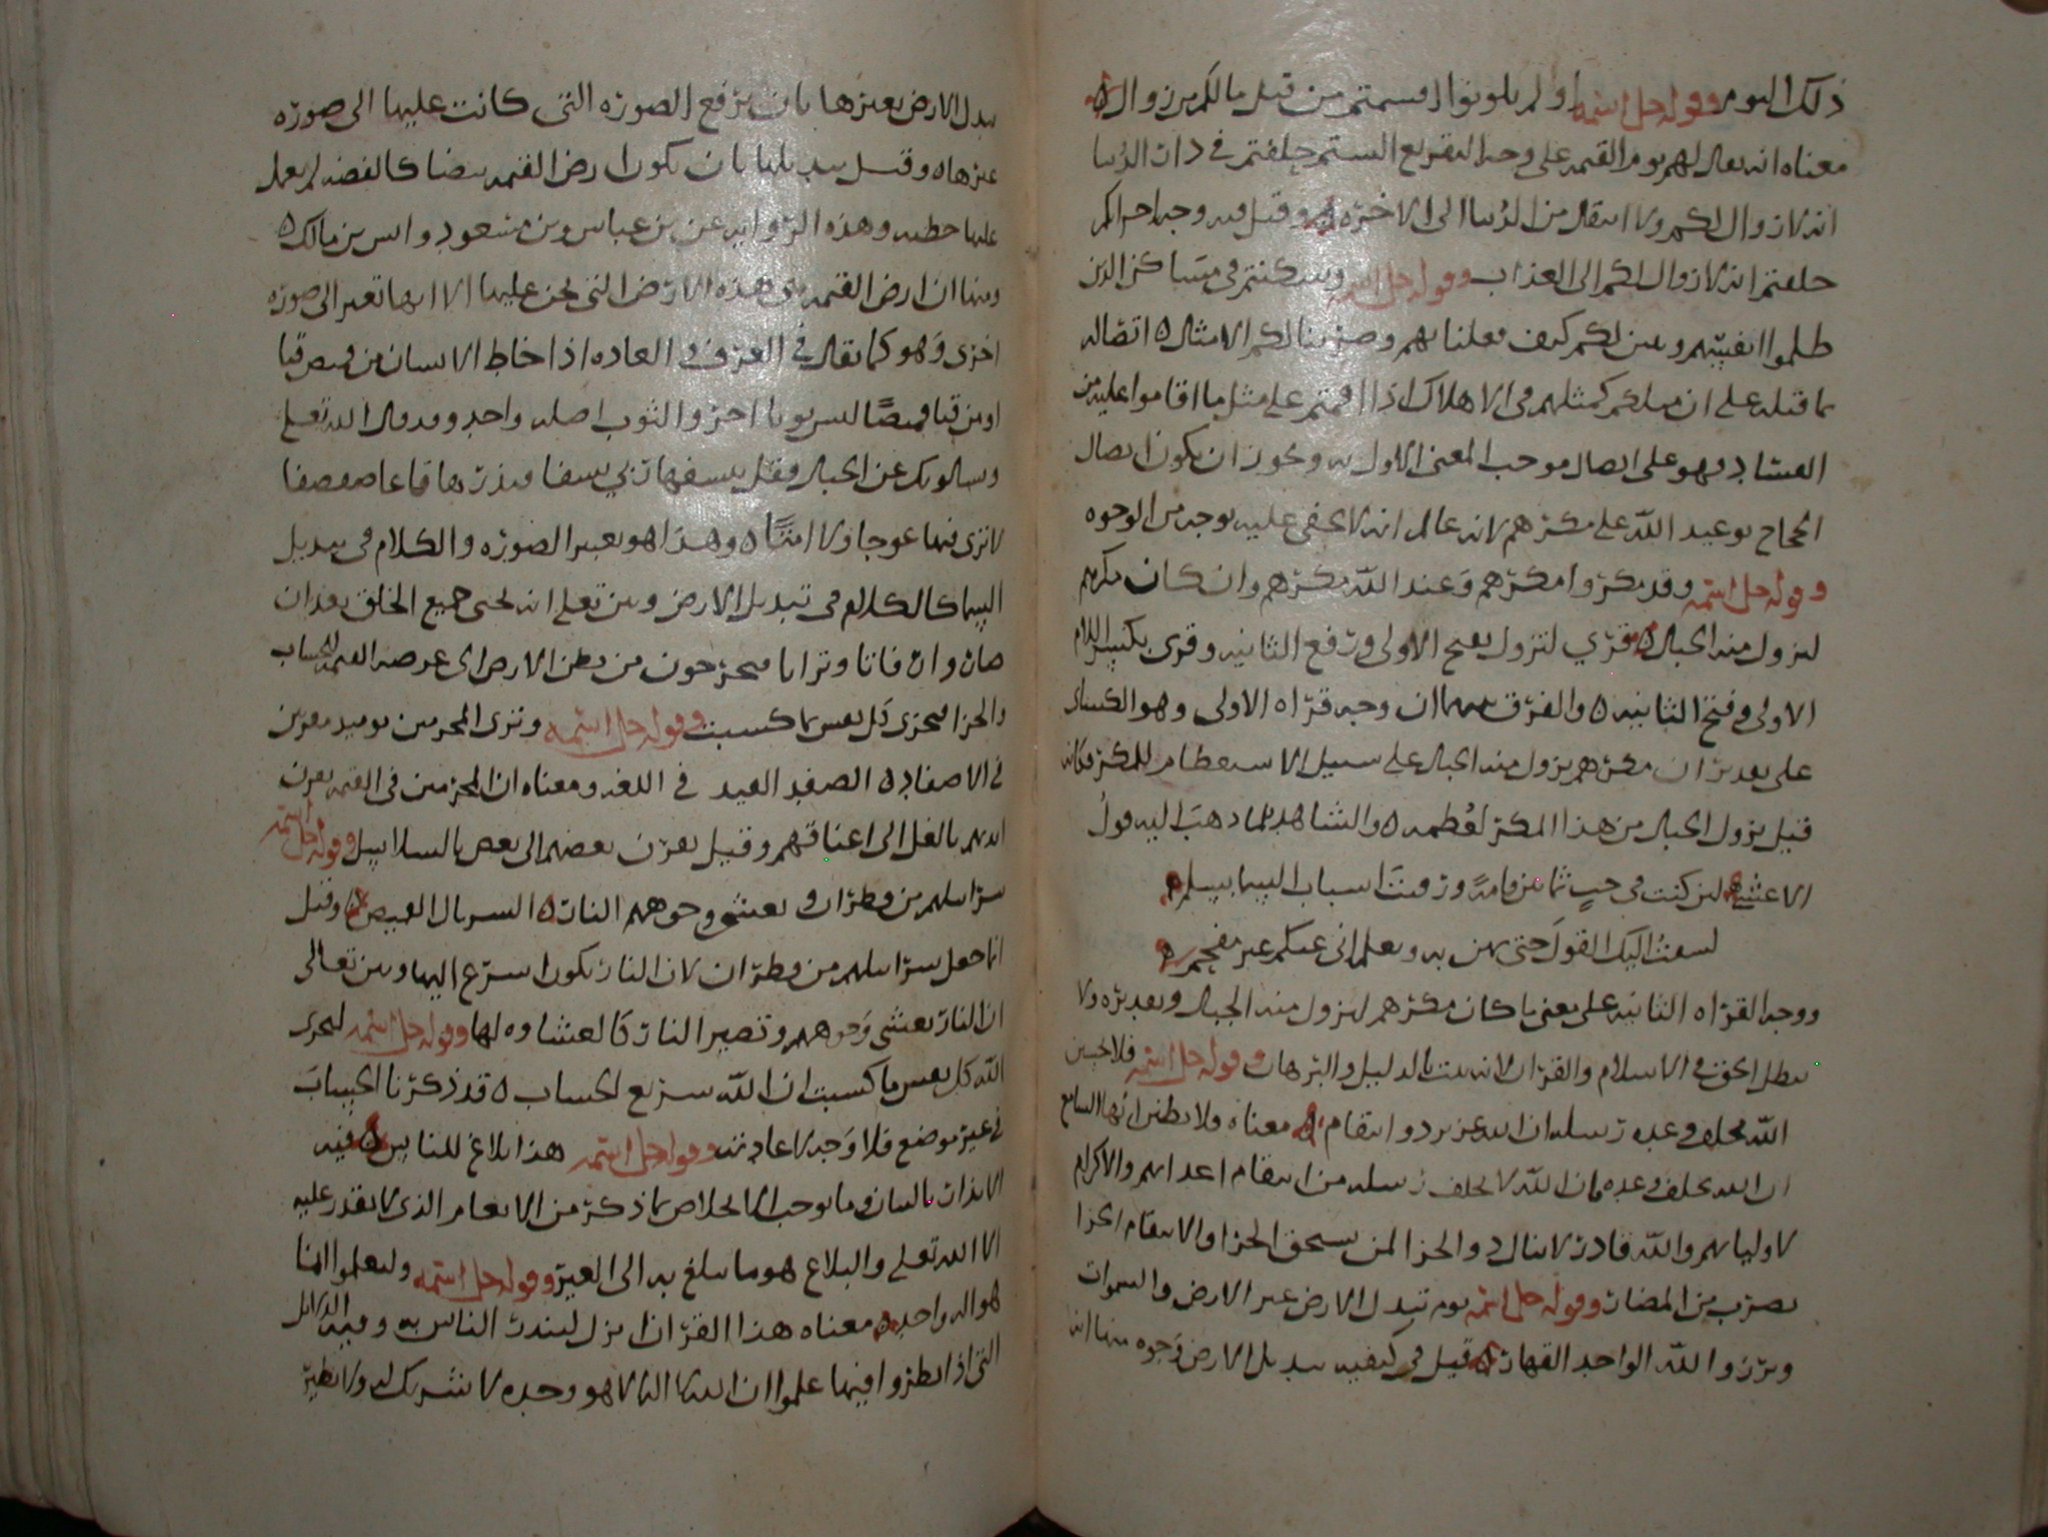 ذلك اليوم وقوله جل اسمه اولم تكونوا اقسمتم من قبل ما لكم من زوال
معناه انه يقال لهم يوم القيمه على وجه التقريع الستم حلفتم في دار الدنيا
انه لا زوال لكم ولا انتقال من الدنيا الى الاخره وقيل فيه وجه اخر اكم
حلفتم انه لا زوال لكم الى العذاب وقوله جل اسمه وسكنتم في مساكن الذين
ظلموا انفسهم وتبين لكم كيف فعلنا بهم وضربنا لكم الامثال اتصاله
بما قبله على ان مثلكم كمثلهم في الاهلاك اذا اقمتم على مثل ما اقاموا عليه من
الفساد فهو على اتصال موجب المعنى الاول به ويجوز ان يكون اتصال
الحجاج بوعيد الله على مكرهم لانه عالم انه لا يخفى عليه بوجه من الوجوه
وقوله جل اسمه وقد مكروا مكرهم وعند الله مكرهم وان كان مكرهم
لتزول منه الجبال قرئ لتزول بفتح الاولى ورفع الثانيه وقرى بكسر اللام
الاولى وفتح الثانيه والفرق بينهما ان وجه قراه الاولى وهو الكسائى
على تقدير ان مكرهم يزول منه الجبال على سبيل الاستعظام للمكر فكانه
قيل يزول الجبال من هذا المكر لعظمه والشاهد لما ذهب اليه قول
الاعشى لئن كنت في جب ثمانين قامة ورقيت اسباب السما بسلم
ليستدرجنك القول حتى تهره وتعلم انى عنكم غير مفحم
ووجه القراه الثانيه على معنى ما كان مكرهم لتزول منه الجبال وتقديره ولا
يبطل الحق في الاسلام والقران لانه ثبت بالدليل والبرهان وقوله جل اسمه فلا تحسبن
الله مخلف وعده رسله ان الله عزيز ذو انتقام معناه ولا تظنن ايها السامع
ان الله يخلف وعده فان الله لا يخلف رسله من انتقام اعدائهم والاكرام
لاوليائهم والله قادر لا ينال ذو الجزا لمن يستحق الجزا والانتقام الجزا
بضرب من المضار وقوله جل اسمه يوم تبدل الارض غير الارض والسموات
وبرزوا لله الواحد القهار قيل في كيفيه تبديل الارض وجوه منها انه
تبدل الارض بغيرها بان ترفع الصوره التى كانت عليها الى صوره
غيرها وقيل تبديلها بان يكون ارض القيمه بيضا كالفضه لم يعمل
عليها خطيه وهذه الروايه عن بن عباس وبن مسعود وانس بن مالك
ومنها ان ارض القيمه هى هذه الارض التى نحن عليها الا انها تغير الى صوره
اخرى وهو كما يقال في العرف والعاده اذا خاط الانسان من قميص قبا
او من قبا قميصا لبس ثوبا اخر والثوب اصله واحد وقد قال الله تعلى
ويسالونك عن الجبال فقل ينسفها ربي نسفا فيذرها قاعا صفصفا
لا ترى فيها عوجا ولا امتا وهذا هو تغيير الصوره والكلام في تبديل
السما كالكلام في تبديل الارض وبين تعلى انه يحيى جميع الخلق بعد ان
صاروا رفاتا وترابا فيخرجون من بطن الارض الى عرصه القيمه للحساب
والجزا فيجزى كل نفس بما كسبت وقوله جل اسمه وترى المجرمين يوميذ مقرنين
في الاصفاد الصفد القيد في اللغه ومعناه ان المجرمين في القيمه يقرن
ايديهم بالغل الى اعناقهم وقيل يقرن بعضهم الى بعض بالسلاسل وقوله جل اسمه
سرابيلهم من قطران وتغشى وجوههم النار السربال القميص وقيل
انما جعل سرابيلهم من قطران لان النار تكون اسرع اليها وبين تعالى
ان النار تغشى وجوههم وتصير النار كالغشاوه لها وقوله جل اسمه ليجزى
الله كل نفس ما كسبت ان الله سريع الحساب قد ذكرنا الحساب
في غير موضع فلا وجه لاعادته وقوله جل اسمه هذا بلاغ للناس فيه
الانذار بالبيان وما يوجب الاخلاص بما ذكر من الانعام الذى لا يقدر عليه
الا الله تعلى والبلاغ هو ما يبلغ به الى الغير وقوله جل اسمه وليعلموا انما
هو اله واحد معناه هذا القران انزل لينذر الناس به وفيه الدلايل
التى اذا نظروا فيها علموا ان الله الا هو وحده لا شريك له ولا نظير